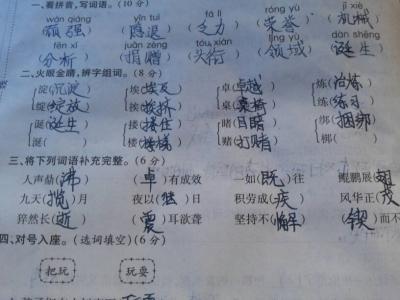 一、看拼音,写词语。(10分)
wán qiáng yǐn tuì fá lì róng yù jī xiè
(顽强) (隐退) (乏力) (荣誉) (机械)
fēn xī juān zèng tóu xián lǐng yù dàn shēng
(分析) (捐赠) (头衔) (领域) (诞生)
二、火眼金睛,辨字组词。(8分)
淀(沉淀) 埃(埃及) 卓(卓越) 炼(冶炼)
绽(绽放) 挨(挨挤) 桌(桌椅) 练(练习)
诞(诞生) 搂(搂住) 睹(目睹) 绑(捆绑)
涎( ) 楼( ) 赌(打赌) 梆( )
三、将下列词语补充完整。(6分)
人声鼎(沸) (卓)有成效 一如(既)往 鲲鹏展(翅)
九天(揽)月 夜以(继)日 积劳成(疾) 风华正(茂)
猝然长(逝) (震)耳欲聋 坚持不(懈) (锲)而不
四、对号入座。(选词填空)(6分)
把玩 玩耍